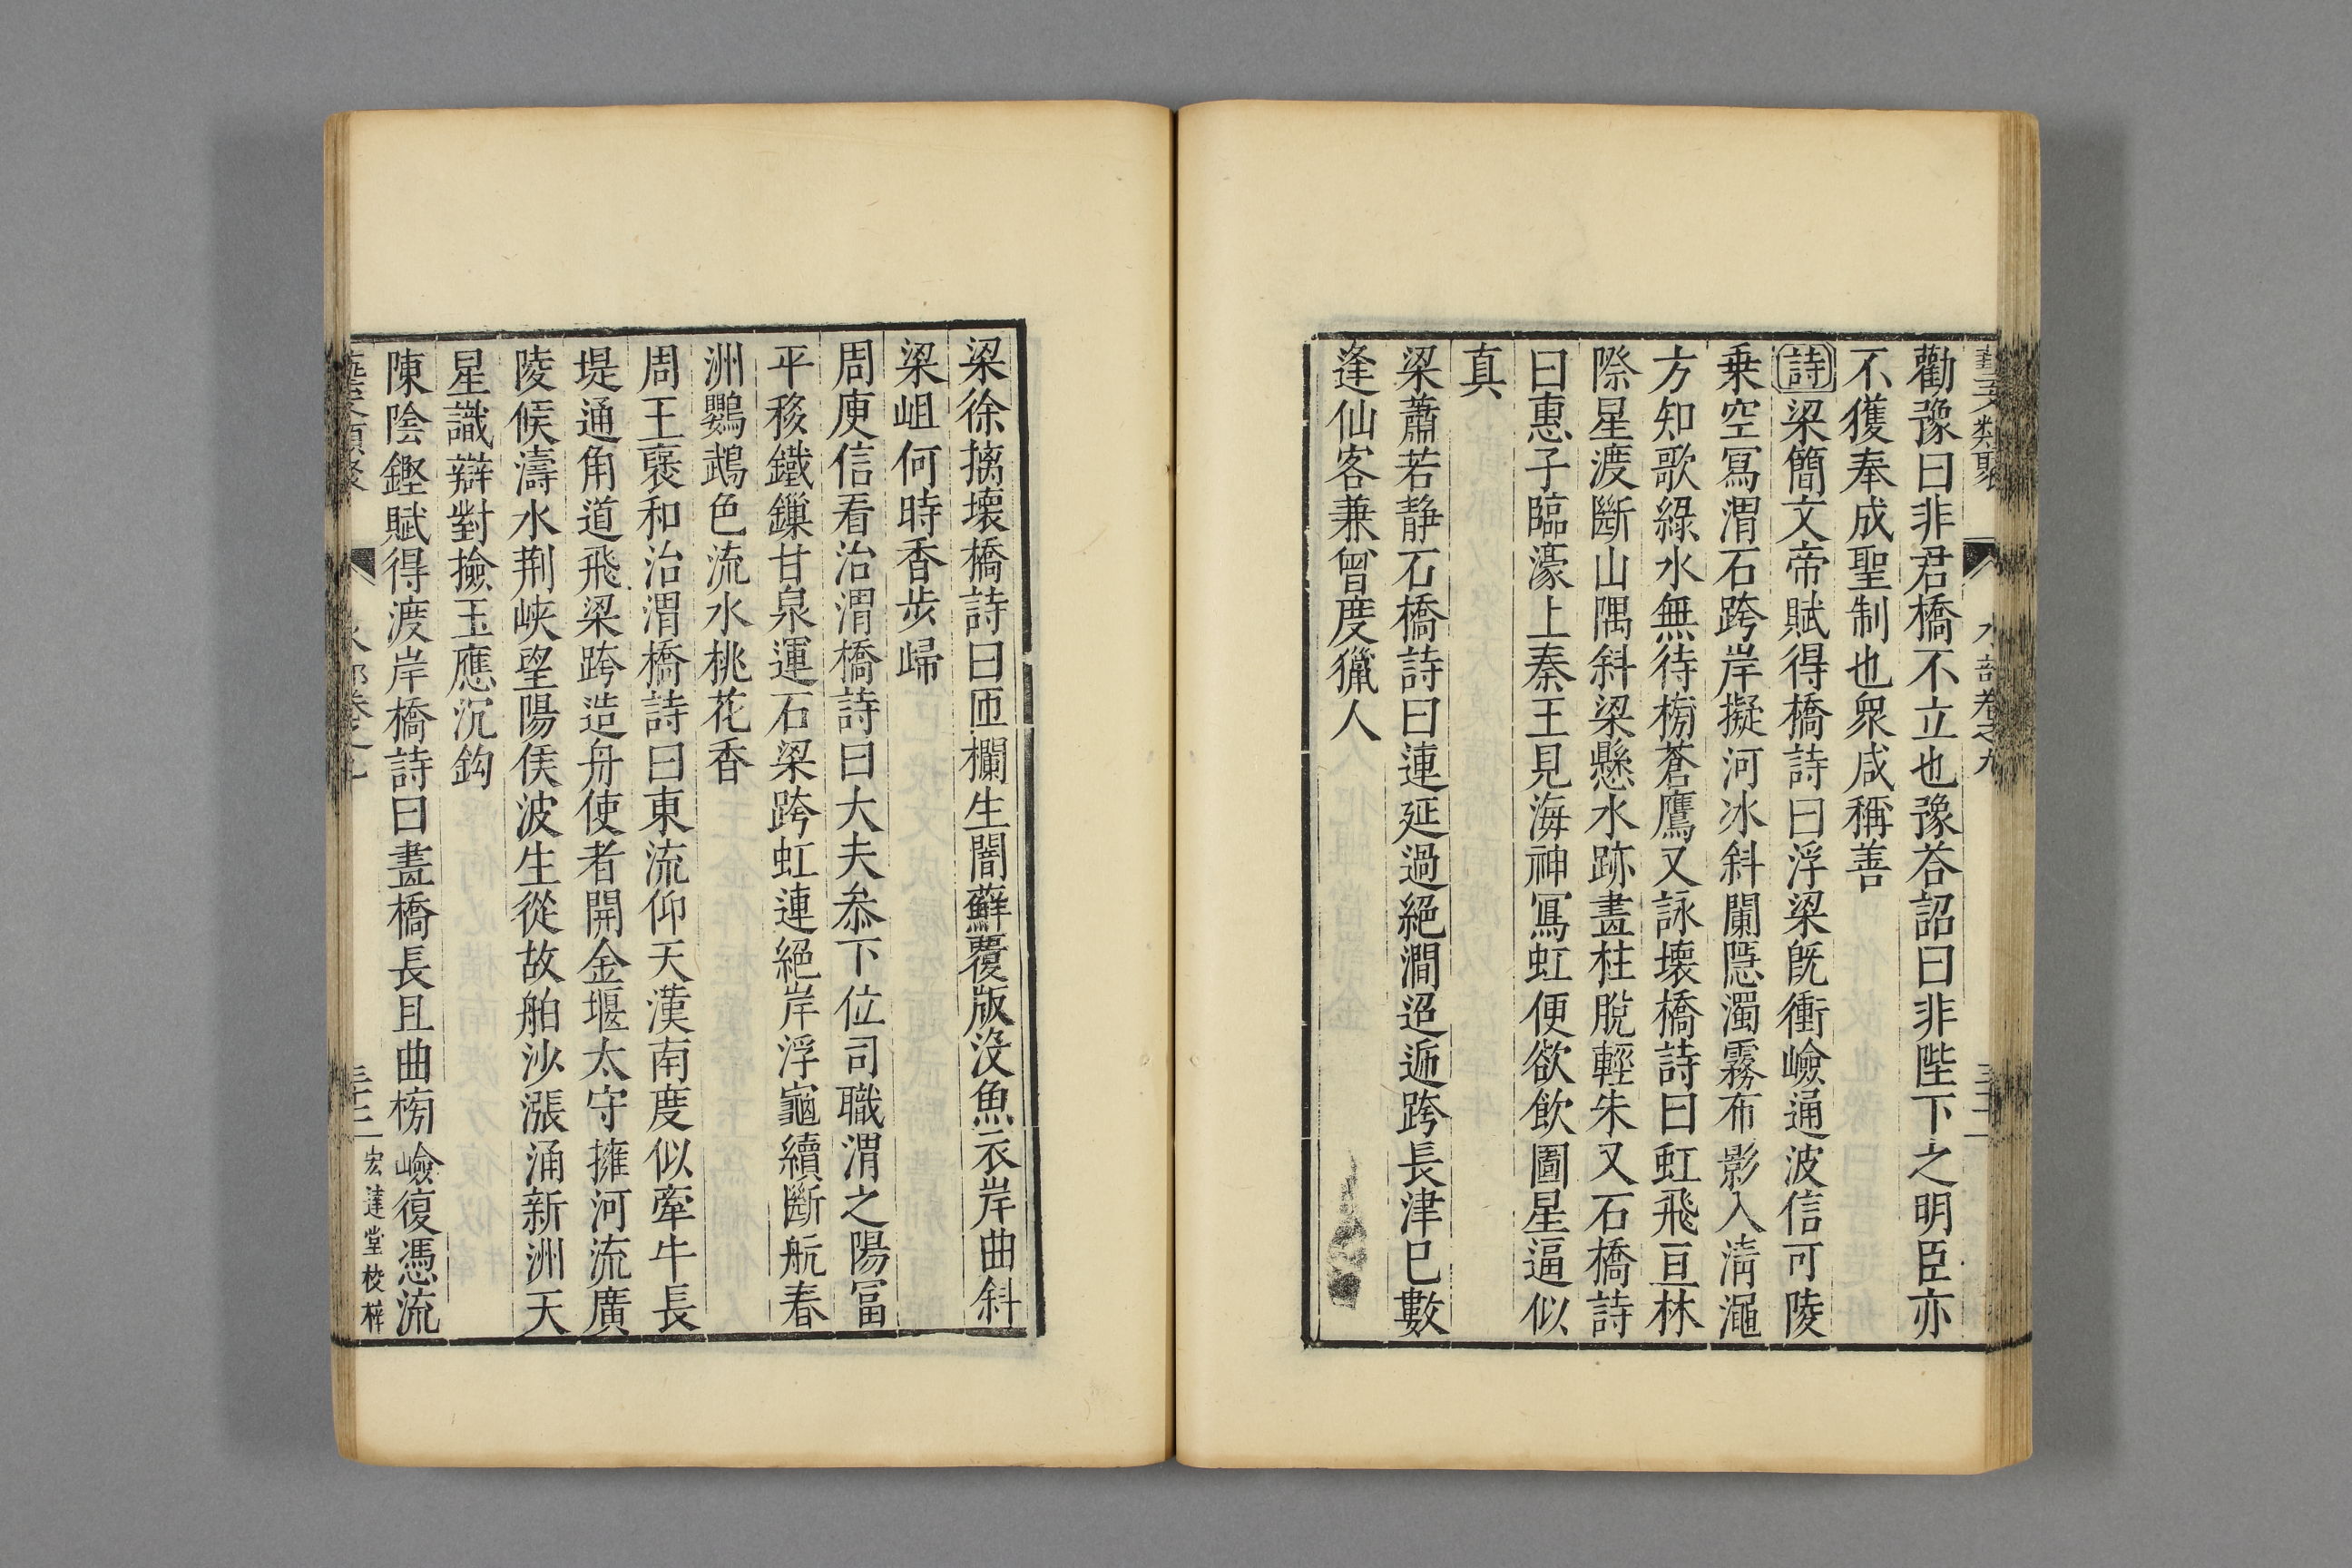 藝文類聚 水部卷之九 三十一
勸豫曰非君橋不立也豫荅詔曰非陛下之明臣亦
不獲奉成聖制也衆咸稱善
詩梁簡文帝賦得橋詩曰浮梁旣衝嶮通波信可陵
乗空冩渭石跨岸擬河冰斜闌隱濁霧布影入清澠
方知歌綠水無待榜蒼鷹又詠壊橋詩曰虹飛亘林
際星渡斷山隅斜梁懸水跡畫柱脫輕朱又石橋詩
曰惠子臨濠上秦王見海神冩虹便欲飲圖星逼似
真
梁蕭若静石橋詩曰連延過絕澗迢遞跨長津已數
逢仙客兼曾度獵人
梁徐摛壊橋詩曰匝欄生闇蘚覆版没魚衣岸曲斜
梁岨何時香步歸
周庾信看治渭橋詩曰大夫叅下位司職渭之陽冨
平移鐵鏁甘泉運石梁跨虹連絕岸浮龜續斷航春
洲鸚鵡色流水桃花香
周王襃和治渭橋詩曰東流仰天漢南度似牽牛長
堤通角道飛梁跨造舟使者開金堰太守擁河流廣
陵候濤水荆峽望陽侯波生從故舶沙漲涌新洲天
星識辯對撿玉應沉鈎
陳陰鏗賦得渡岸橋詩曰畫橋長且曲榜嶮復憑流
宏達堂校梓